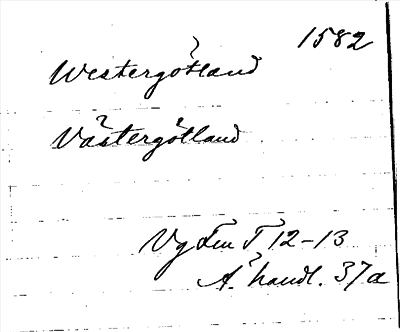 1582
Westergötland
Västergötland
Vg 12-13
Ä. handl. 37a